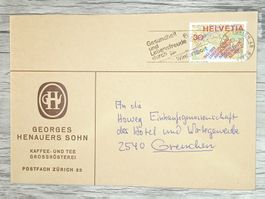 HELVETIA
30
Gesundheit
und
Lebensfreude
durch
Wintersport
GH
GEORGES
HENAUERS SOHN
KAFFEE- UND TEE
GROSSRÖSTEREI
POSTFACH ZÜRICH 22
An die
Howeg Einkaufsgenossenschaft
des Hotel und Wirtegewerbe
2540 Grenchen